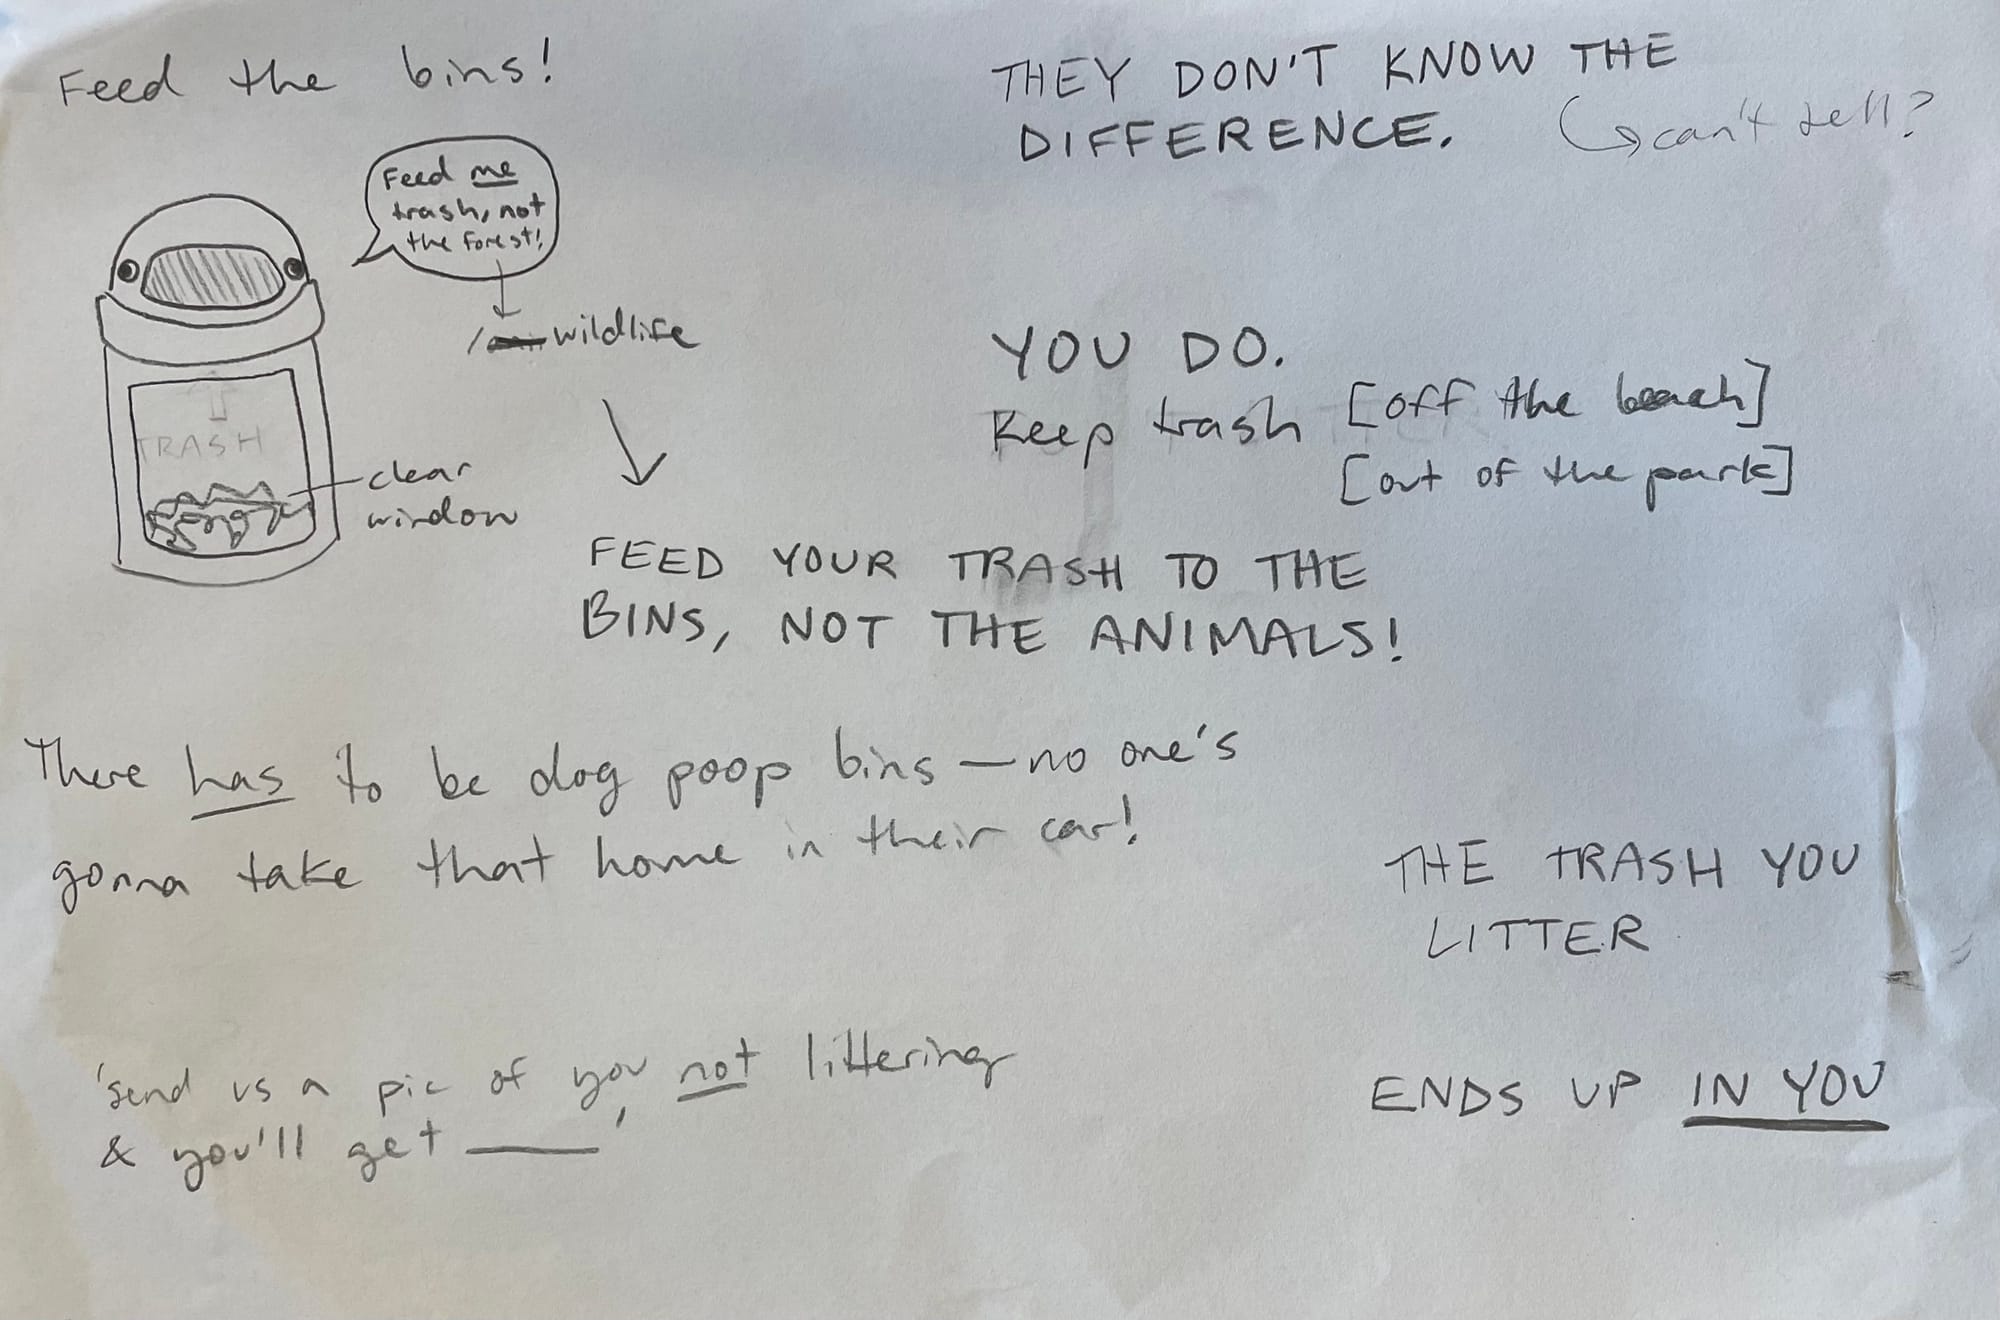 Feed the bins!
Feed me
trash, not
the forest!
/ wildlife
TRASH
clear
window
THEY DON'T KNOW THE
DIFFERENCE.
can't tell?
YOU DO.
Keep trash [off the beach]
[out of the park]
FEED YOUR TRASH TO THE
BINS, NOT THE ANIMALS!
There has to be dog poop bins — no one's
gonna take that home in their car!
THE TRASH YOU
LITTER
ENDS UP IN YOU
'Send us a pic of you not littering
& you'll get ____'